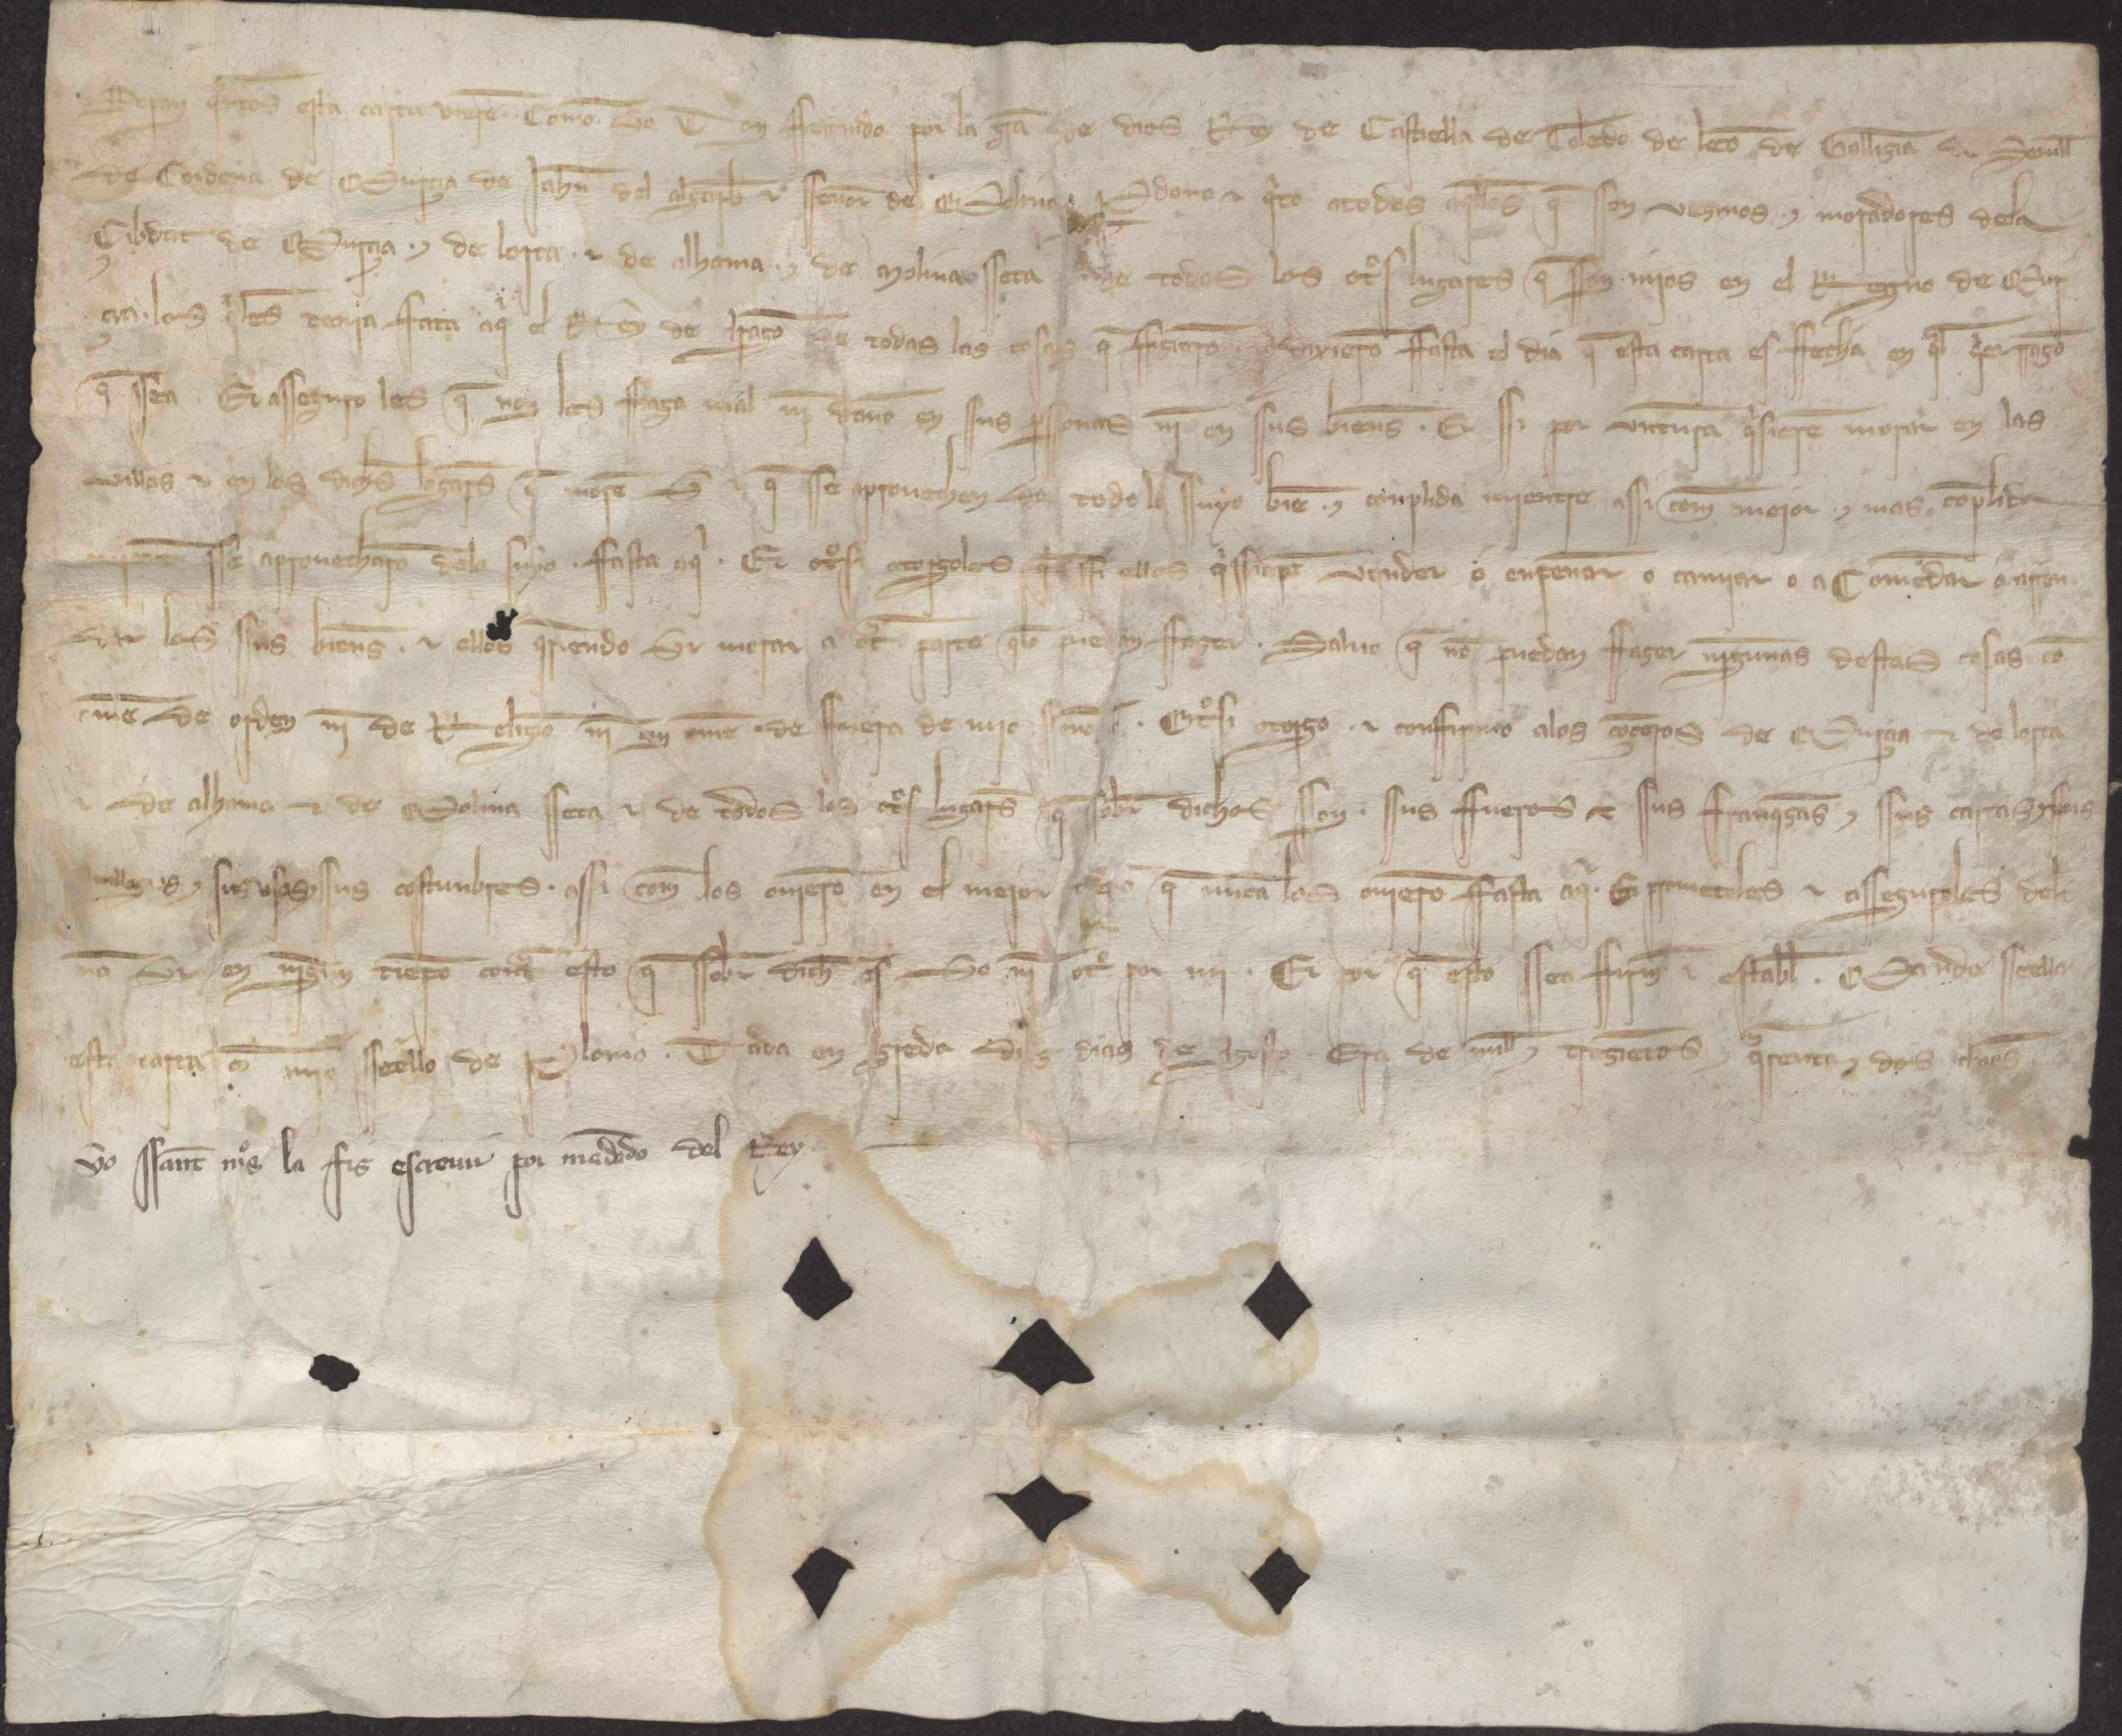 Sepan qntos esta carta vieren Como yo Don fferrando por la gra de dios Rey de Castiella de Toledo de leon de Gallizia de Seuill
de Cordoua de Murçia de Jahn del algarb & ssennor de Molina Perdono & qto a todos aqllos q son vezinos y moradores dela
Çibdat de Murçia y de lorca & de alhama y de Molina sseca & de todos los otros lugares q sson mios en el Regno de Mur
çia los qles tenia fata aqi el Rey de Aragō de todas las cosas q ffizierō & dixierō ffasta el dia q esta carta es ffecha en ql qer razō
q ssea . Et asseguro les q non les ffaga mal nī danno en sus perssonas nī en sus bienes . Et ssi por uentura qsierē morar en las
villas & en los dichos logares q morē y & q sse aprouechen de todo lo ssuyo biē y conplida mientre assi com meior y mas conplida
mientre sse aprouecharō delo suyo fasta aqi . Et otrossi otorgoles q ssi ellos qssierē vender o enpennar o camiar o a Comēdar o arren
dar los ssus bienes . & ellos qriendo yr morar a otra parte qlo puedan ffazer . Saluo q nō puedan ffazer ningunas destas cosas cō
omē de orden nī de Religiō nī con omē de fuera de mio sennorio . Otrossi otorgo & conffirmo a los cōceios de Murçia & de lorca
& de alhama & de Molina sseca & de todos los otros lugares q sobre dichos sson . ssus ffueros & sus franqzas y ssus cartas y sus
priuillegios y sus usos y sus costunbres . assi com los ouierō en el meior tienpo q nunca los ouierō ffasta aqi . Et prometoles & asseguroles de
nō yr en ningun tienpo contra esto q ssobre dicho es yo nī otro por mi . Et por q esto ssea firme & estable . Mande sseellar
esta carta cō mio sseello de Plomo . Dada en Agreda diez dias de Agosto . Era de mill y trezientos y qrenta y dos annos
yo ssant mns la fiz escreuir por mādado del Rey